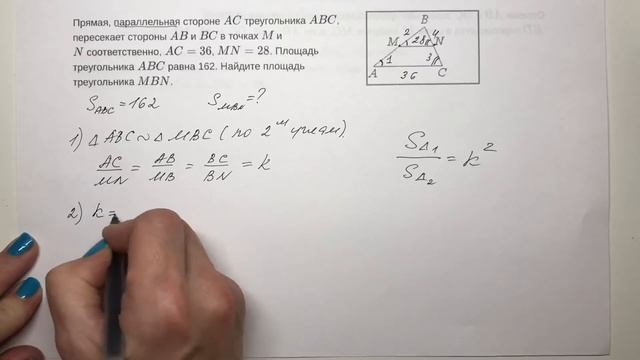 Прямая, параллельная стороне AC треугольника ABC,
пересекает стороны AB и BC в точках M и
N соответственно, AC = 36, MN = 28. Площадь
треугольника ABC равна 162. Найдите площадь
треугольника MBN.
B
2 4
M 28 N
1 3
A 36 C
S_ABC = 162 S_MBN = ?
1) Δ ABC ~ Δ MBC (по 2ᵐ углам).
AC/MN = AB/MB = BC/BN = k
S_Δ1/S_Δ2 = k²
2) k =